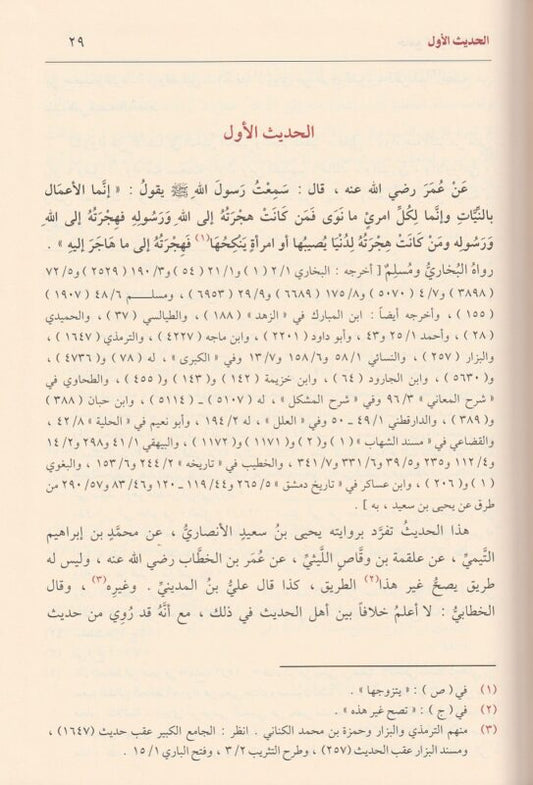 الحديث الأول
٢٩
الحديث الأول
عَنْ عُمَرَ رضي الله عنه ، قال : سَمِعْتُ رَسولَ اللهِ ﷺ يقولُ : « إنَّما الأعمَال
بالنِّيَّاتِ وإنَّما لِكُلِّ امرئٍ ما نَوَى فَمَن كَانَتْ هجْرَتُهُ إلى اللهِ وَرَسُولِهِ فهِجْرَتُهُ إلى اللهِ
وَرَسُولِه ومَنْ كَانَتْ هِجْرَتُه لِدُنْيَا يُصيبُها أو امرأةٍ يَنكِحُهَا(١) فَهِجْرَتُهُ إلى ما هَاجَر إليهِ » .
رواهُ البُخاريُّ ومُسلِمٌ [ أخرجه : البخاري ٢/١ ( ١ ) و٢١/١ ( ٥٤ ) و١٩٠/٣ ( ٢٥٢٩ ) و٧٢/٥
( ٣٨٩٨ ) و٤/٧ ( ٥٠٧٠ ) و١٧٥/٨ ( ٦٦٨٩ ) و٢٩/٩ ( ٦٩٥٣ ) ، ومسلم ٤٨/٦ ( ١٩٠٧ )
( ١٥٥ ) ، وأخرجه أيضاً : ابن المبارك في « الزهد » ( ١٨٨ ) ، والطيالسي ( ٣٧ ) ، والحميدي
( ٢٨ ) ، وأحمد ٢٥/١ و٤٣ ، وأبو داود ( ٢٢٠١ ) ، وابن ماجه ( ٤٢٢٧ ) ، والترمذي ( ١٦٤٧ ) ،
والبزار ( ٢٥٧ ) ، والنسائي ٥٨/١ و١٥٨/٦ و١٣/٧ وفي « الكبرى » ، له ( ٧٨ ) و( ٤٧٣٦ )
و( ٥٦٣٠ ) ، وابن الجارود ( ٦٤ ) ، وابن خزيمة ( ١٤٢ ) و( ١٤٣ ) و( ٤٥٥ ) ، والطحاوي في
« شرح المعاني » ٩٦/٣ وفي « شرح المشكل » ، له ( ٥١٠٧ ) ـ ( ٥١١٤ ) ، وابن حبان ( ٣٨٨ )
و( ٣٨٩ ) ، والدارقطني ٤٩/١ ـ ٥٠ وفي « العلل » ، له ١٩٤/٢ ، وأبو نعيم في « الحلية » ٤٢/٨ ،
والقضاعي في « مسند الشهاب » ( ١ ) و( ٢ ) و( ١١٧١ ) و( ١١٧٢ ) ، والبيهقي ٤١/١ و٢٩٨ و١٤/٢
و١١٢/٤ و٢٣٥ و٣٩/٥ و٣٣١/٦ و٣٤١/٧ ، والخطيب في « تاريخه » ٢٤٤/٢ و١٥٣/٦ ، والبغوي
( ١ ) و( ٢٠٦ ) ، وابن عساكر في « تاريخ دمشق » ٢٦٥/٥ و١١٩/٤٤ ـ ١٢٠ و٨٣/٤٦ و٢٩٠/٥٧ من
طرق عن يحيى بن سعيد ، به ] .
هذا الحديثُ تفرَّد بروايته يحيى بنُ سعيدٍ الأنصاريُّ ، عن محمَّدِ بن إبراهيم
التَّيميِّ ، عن علقمة بن وقَّاصٍ اللَّيثيِّ ، عن عُمَر بن الخطَّاب رضي الله عنه ، وليس له
طريق يصحُّ غير هذا(٢) الطريق ، كذا قال عليُّ بنُ المدينيِّ . وغيرِه(٣) ، وقال
الخطابيُّ : لا أعلمُ خلافاً بين أهل الحديث في ذلك ، مع أنَّهُ قد رُوِي من حديث
(١) في ( ص ) : « يتزوجها » .
(٢) في ( ج ) : « تصح غير هذه » .
(٣) منهم الترمذي والبزار وحمزة بن محمد الكناني . انظر : الجامع الكبير عقب حديث (١٦٤٧) ،
ومسند البزار عقب الحديث (٢٥٧) ، وطرح التثريب ٣/٢ ، وفتح الباري ١٥/١ .